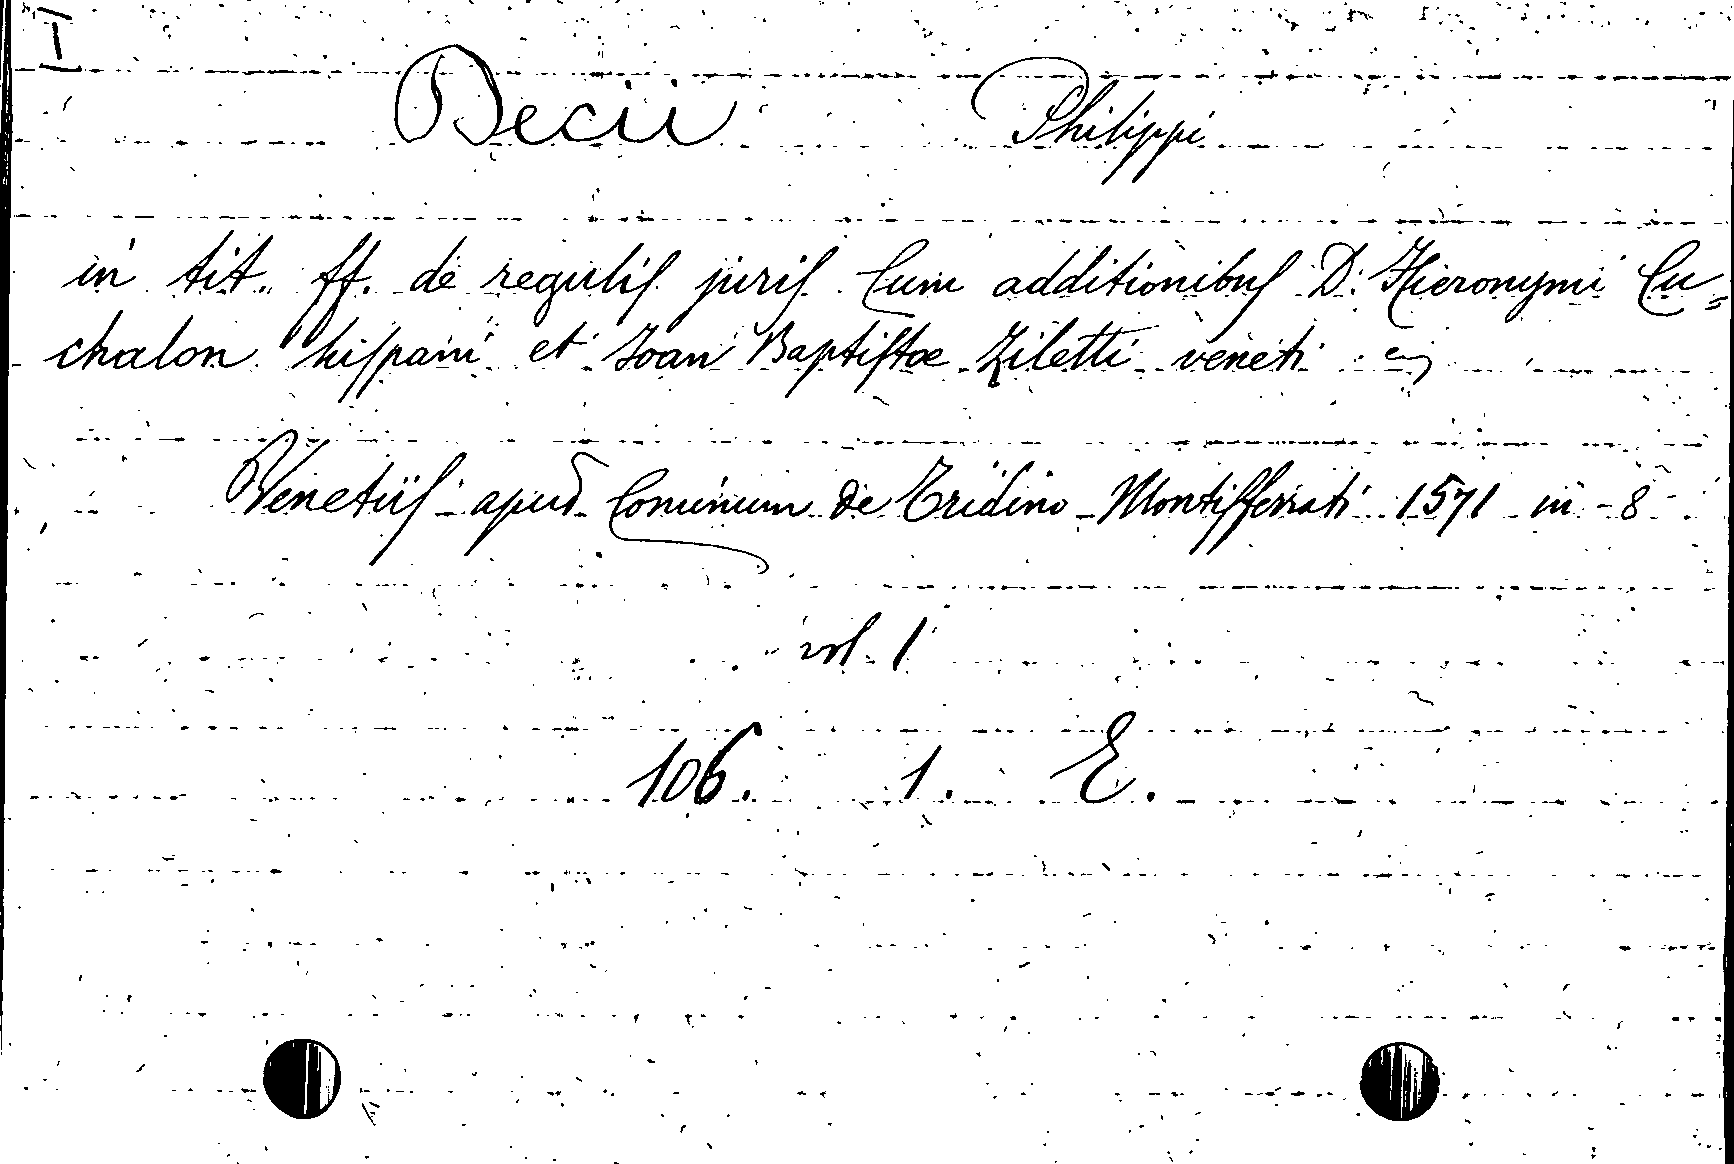 I
Decii Philippi
in tit. ff. de regulis juris Cum additionibus D. Hieronymi Cu=
chalon hispani et Joan Baptistæ Ziletti veneti
Venetiis apud Cominum de Tridino Montisferrati 1571 in 8
vol. 1
106. 1. E.